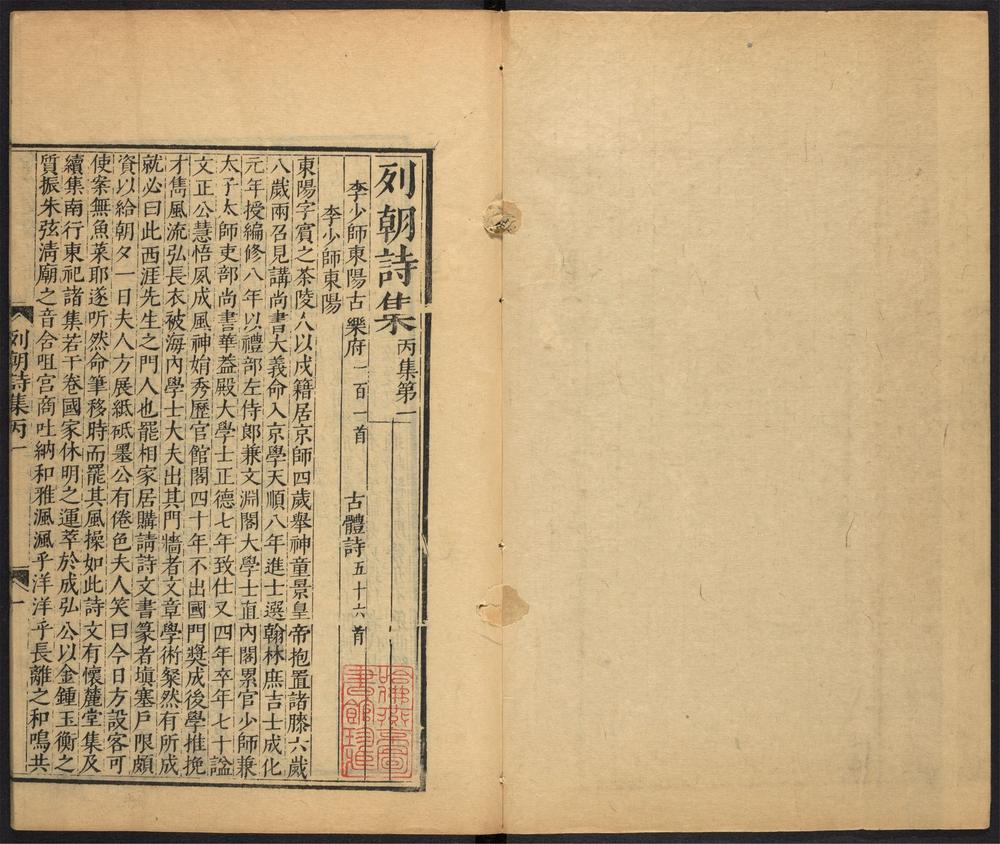 列朝詩集 丙集第一
李少師東陽古樂府一百一首 古體詩五十六首
李少師東陽
東陽字賓之茶陵人以戍籍居京師四歲舉神童景皇帝抱置諸膝六歲
八歲兩召見講尚書大義命入京學天順八年進士選翰林庶吉士成化
元年授編修八年以禮部左侍郎兼文淵閣大學士直內閣累官少師兼
太子太師吏部尚書華蓋殿大學士正德七年致仕又四年卒年七十諡
文正公慧悟夙成風神娟秀歷官館閣四十年不出國門獎成後學推挽
才雋風流弘長衣被海內學士大夫出其門牆者文章學術粲然有所成
就必曰此西涯先生之門人也罷相家居購請詩文書篆者塡塞戶限頗
資以給朝夕一日夫人方展紙砥墨公有倦色夫人笑曰今日方設客可
使案無魚菜耶遂听然命筆移時而罷其風操如此詩文有懷麓堂集及
續集南行東祀諸集若干卷國家休明之運萃於成弘公以金鍾玉衡之
質振朱弦清廟之音含咀宮商吐納和雅渢渢乎洋洋乎長離之和鳴共
列朝詩集丙一
一
哈佛燕京圖書館珍藏